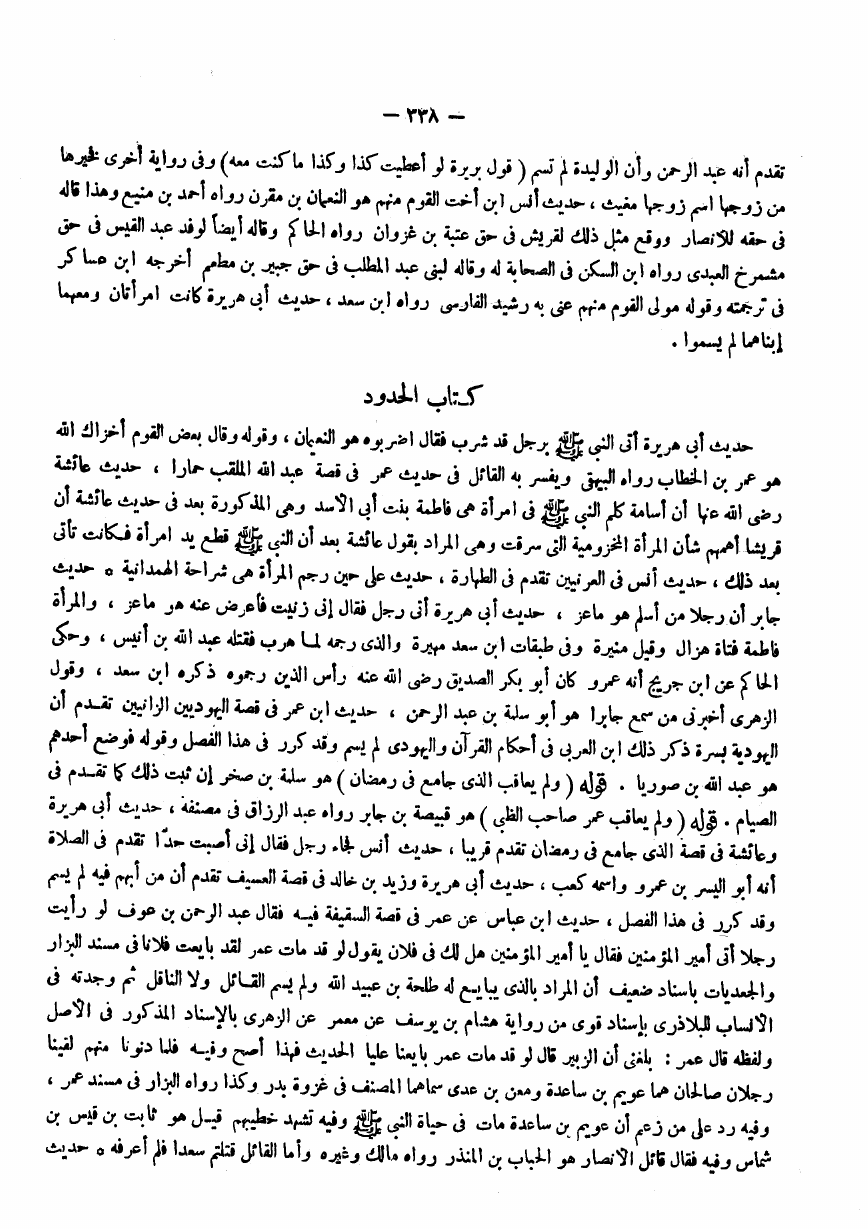 — ٣٣٨ —
تقدم أنه عبد الرحمن وأن الوليدة لم تسم ( قول بريرة لو أعطيت كذا وكذا ما كنت معه) وفى رواية أخرى فخيرها
من زوجها اسم زوجها مغيث ، حديث أنس ابن أخت القوم منهم هو النعمان بن مقرن رواه أحمد بن منيع وهذا قاله
فى حقه للأنصار ووقع مثل ذلك لقريش فى حق عتبة بن غزوان رواه الحاكم وقاله أيضاً لوفد عبد القيس فى حق
مشمرخ العبدى رواه ابن السكن فى الصحابة له وقاله لبنى عبد المطلب فى حق جبير بن مطعم أخرجه ابن عساكر
فى ترجمته وقوله مولى القوم منهم عنى به رشيد الفارسى رواه ابن سعد ، حديث أبى هريرة كانت امرأتان ومعهما
إبناهما لم يسموا .
كتاب الحدود
حديث أبى هريرة أتى النبي ﷺ برجل قد شرب فقال اضربوه هو النعيمان ، وقوله وقال بعض القوم أخزاك الله
هو عمر بن الخطاب رواه البيهقى ويفسر به القائل فى حديث عمر فى قصة عبد الله الملقب حمارا ، حديث عائشة
رضى الله عنها أن أسامة كلم النبي ﷺ فى امرأة هى فاطمة بنت أبى الأسد وهى المذكورة بعد فى حديث عائشة أن
قريشا أهمهم شأن المرأة المخزومية التى سرقت وهى المراد بقول عائشة بعد أن النبي ﷺ قطع يد امرأة فكانت تأتى
بعد ذلك ، حديث أنس فى العرنيين تقدم فى الطهارة ، حديث على حين رجم المرأة هى شراحة الهمدانية * حديث
جابر أن رجلا من أسلم هو ماعز ، حديث أبى هريرة أتى رجل فقال إنى زنيت فأعرض عنه هو ماعز ، والمرأة
فاطمة فتاة هزال وقيل منيرة وفى طبقات ابن سعد مهيرة والذى رجمه لما هرب فقتله عبد الله بن أنيس ، وحكى
الحاكم عن ابن جريج أنه عمرو كان أبو بكر الصديق رضى الله عنه رأس الذين رجموه ذكره ابن سعد ، وقول
الزهرى أخبرنى من سمع جابرا هو أبو سلمة بن عبد الرحمن ، حديث ابن عمر فى قصة اليهوديين الزانيين تقدم أن
اليهودية بسرة ذكر ذلك ابن العربى فى أحكام القرآن واليهودى لم يسم وقد كرر فى هذا الفصل وقوله فوضع أحدهم
هو عبد الله بن صوريا . قوله ( ولم يعاقب الذى جامع فى رمضان ) هو سلمة بن صخر إن ثبت ذلك كما تقدم فى
الصيام . قوله ( ولم يعاقب عمر صاحب الظبى ) هو قبيصة بن جابر رواه عبد الرزاق فى مصنفه ، حديث أبى هريرة
وعائشة فى قصة الذى جامع فى رمضان تقدم قريبا ، حديث أنس فجاء رجل فقال إنى أصبت حدًا تقدم فى الصلاة
أنه أبو اليسر بن عمرو واسمه كعب ، حديث أبى هريرة وزيد بن خالد فى قصة العسيف تقدم أن من أبهم فيه لم يسم
وقد كرر فى هذا الفصل ، حديث ابن عباس عن عمر فى قصة السقيفة فيه فقال عبد الرحمن بن عوف لو رأيت
رجلا أتى أمير المؤمنين فقال يا أمير المؤمنين هل لك فى فلان يقول لو قد مات عمر لقد بايعت فلانا فى مسند البزار
والجعديات باسناد ضعيف أن المراد بالذى يبايع له طلحة بن عبيد الله ولم يسم القائل ولا الناقل ثم وجدته فى
الأنساب للبلاذرى بإسناد قوى من رواية هشام بن يوسف عن معمر عن الزهرى بالإسناد المذكور فى الأصل
ولفظه قال عمر : بلغنى أن الزبير قال لو قد مات عمر بايعنا عليا الحديث فهذا أصح وفيه فلما دنونا منهم لقينا
رجلان صالحان هما عويم بن ساعدة ومعن بن عدى سماهما المصنف فى غزوة بدر وكذا رواه البزار فى مسند عمر ،
وفيه رد على من زعم أن عويم بن ساعدة مات فى حياة النبي ﷺ وفيه تشهد خطيبهم قيل هو ثابت بن قيس بن
شماس وفيه فقال قائل الأنصار هو الحباب بن المنذر رواه مالك وغيره وأما القائل قتلتم سعدا فلم أعرفه * حديث